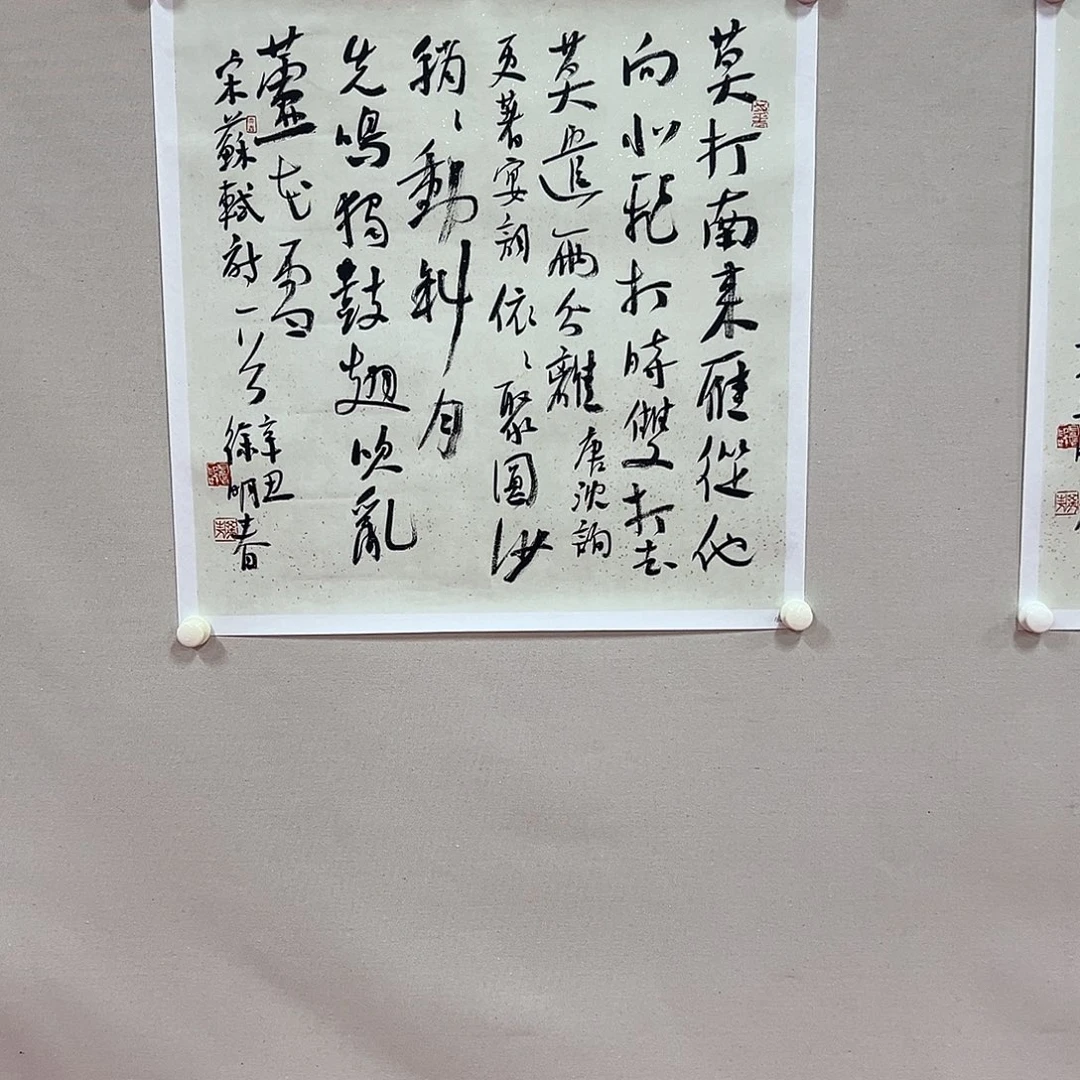 莫打南來雁從他
向北飛打時雙打去
莫遣兩分離唐沈詢
更著宴詞依〻聚圓沙
稍〻動斜月
先鳴獨鼓翅吹亂
蘆花雪
宋蘇軾詩一首
辛丑
徐明春